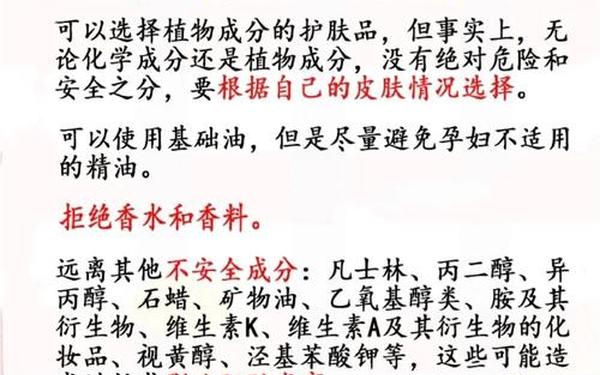 可以选择植物成分的护肤品，但事实上，无
论化学成分还是植物成分，没有绝对危险和
安全之分，要根据自己的皮肤情况选择。
可以使用基础油，但是尽量避免孕妇不适用
的精油。
拒绝香水和香料。
远离其他不安全成分：凡士林、丙二醇、异
丙醇、石蜡、矿物油、乙氧基醇类、胺及其
衍生物、维生素K、维生素A及其衍生物的化
妆品、视黄醇、泾基苯酸钾等，这些可能造